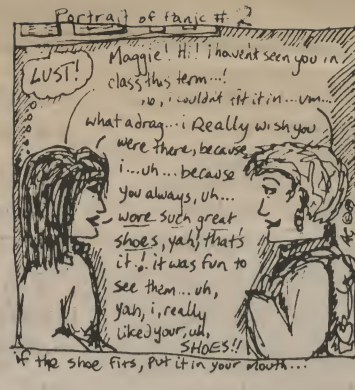 Portrait of Panic #2
LUST!
Maggie! Hi! i havent seen you in
class this term...!
no, i couldnt fit it in...um...
what a drag... i Really wish you
were there, because
i...uh... because
you always, uh...
wore such great
shoes, yah, that's
it! it was fun to
see them... uh,
yah, i, really
liked your, uh,
SHOES!!
if the shoe fits, put it in your mouth...